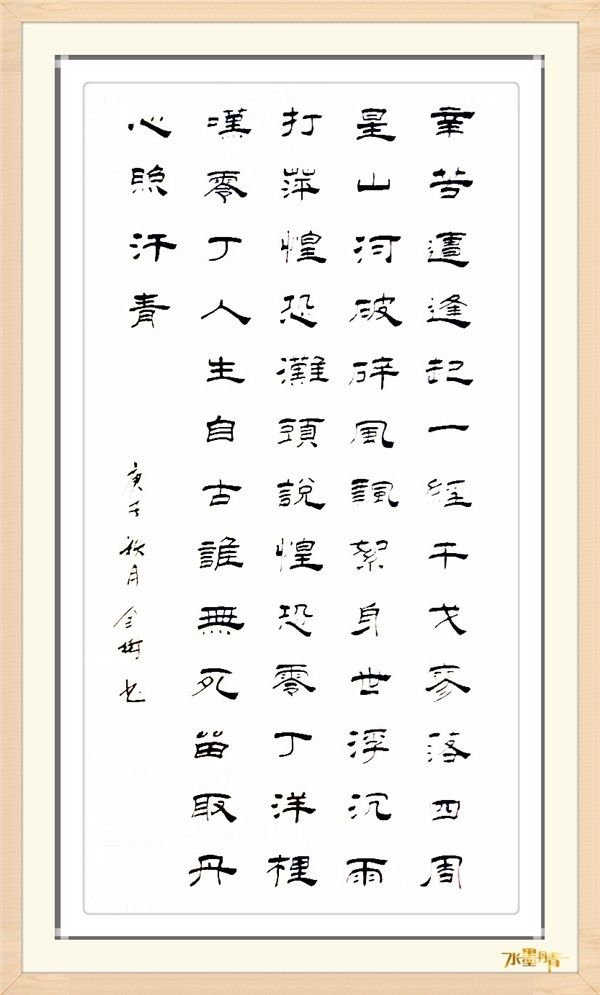 辛苦遭逢起一經干戈寥落四周
星山河破碎風飄絮身世浮沉雨
打萍惶恐灘頭說惶恐零丁洋裡
嘆零丁人生自古誰無死留取丹
心照汗青
庚子秋月金樹书
水墨丹青